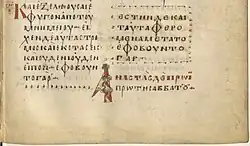 ΚΑΙ ΕΞΕΛΘΟΥϹΑΙ Ε
ΦΥΓΟΝ ΑΠΟ ΤΟΥ
ΜΝΗΜΕΙΟΥ + ΕΙ
ΧΕΝ ΔΕ ΑΥΤΑϹ ΤΡΟ
ΜΟϹ ΚΑΙ ΕΚϹΤΑϹΕΙϹ
ΚΑΙ ΟΥΔΕΝΙ ΟΥΔΕΝ
ΕΙΠΟΝ + ΕΦΟΒΟΥΝ
ΤΟ ΓΑΡ +
ΕϹΤΗΝ ΔΕ ΚΑΙ
ΤΑΥΤΑ ΦΕΡΟ
ΜΕΝΑ ΜΕΤΑ ΤΟ
ΕΦΟΒΟΥΝΤΟ
ΓΑΡ +
ΑΝΑϹΤΑϹ ΔΕ ΠΡΩΙ
ΠΡΩΤΗ ϹΑΒΒΑΤΟΥ